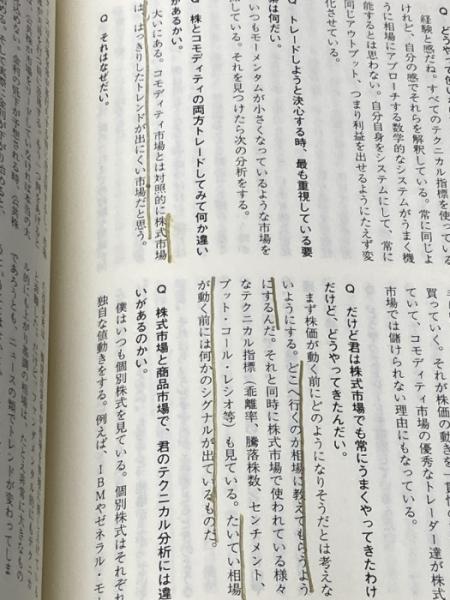 Q　どうやって
経験と感だね。すべてのテクニカル指標を使っている
けれど、自分の感でそれらを解釈している。常に同じよ
うに相場にアプローチする数学的なシステムがうまく機
能するとは思わない。自分自身をシステムにして、常に
同じアウトプット、つまり利益を出せるようにたえず変
化させている。
Q　トレードしようと決心する時、最も重視している要
素は何だい。
いつもモーメンタムが小さくなっているような市場を
探している。それを見つけたら次の分析をする。
Q　株とコモディティの両方トレードしてみて何か違い
があるかい。
大いにある。コモディティ市場とは対照的に株式市場
は、はっきりしたトレンドが出にくい市場だと思う。
Q　それはなぜだい。
買っていく。それが株価の動きを
ていて、コモディティ市場の優秀なトレーダー達が株式
市場では儲けられない理由にもなっている。
Q　だけど君は株式市場でも常にうまくやってきたわけ
だけど、どうやってきたんだい。
まず株価が動く前にどのようになりそうだとは考えな
いようにする。どこへ行くのか相場に教えてもらうよう
にするんだ。それと同時に株式市場で使われている様々
なテクニカル指標（乖離率、騰落株数、センチメント、
プット・コール・レシオ等）も見ている。たいてい相場
が動く前には何かのシグナルが出ているものだ。
Q　株式市場と商品市場で、君のテクニカル分析には違
いがあるのかい。
僕はいつも個別株式を見ている。個別株式はそれぞれ
独自な値動きをする。例えば、IBMやゼネラル・モー